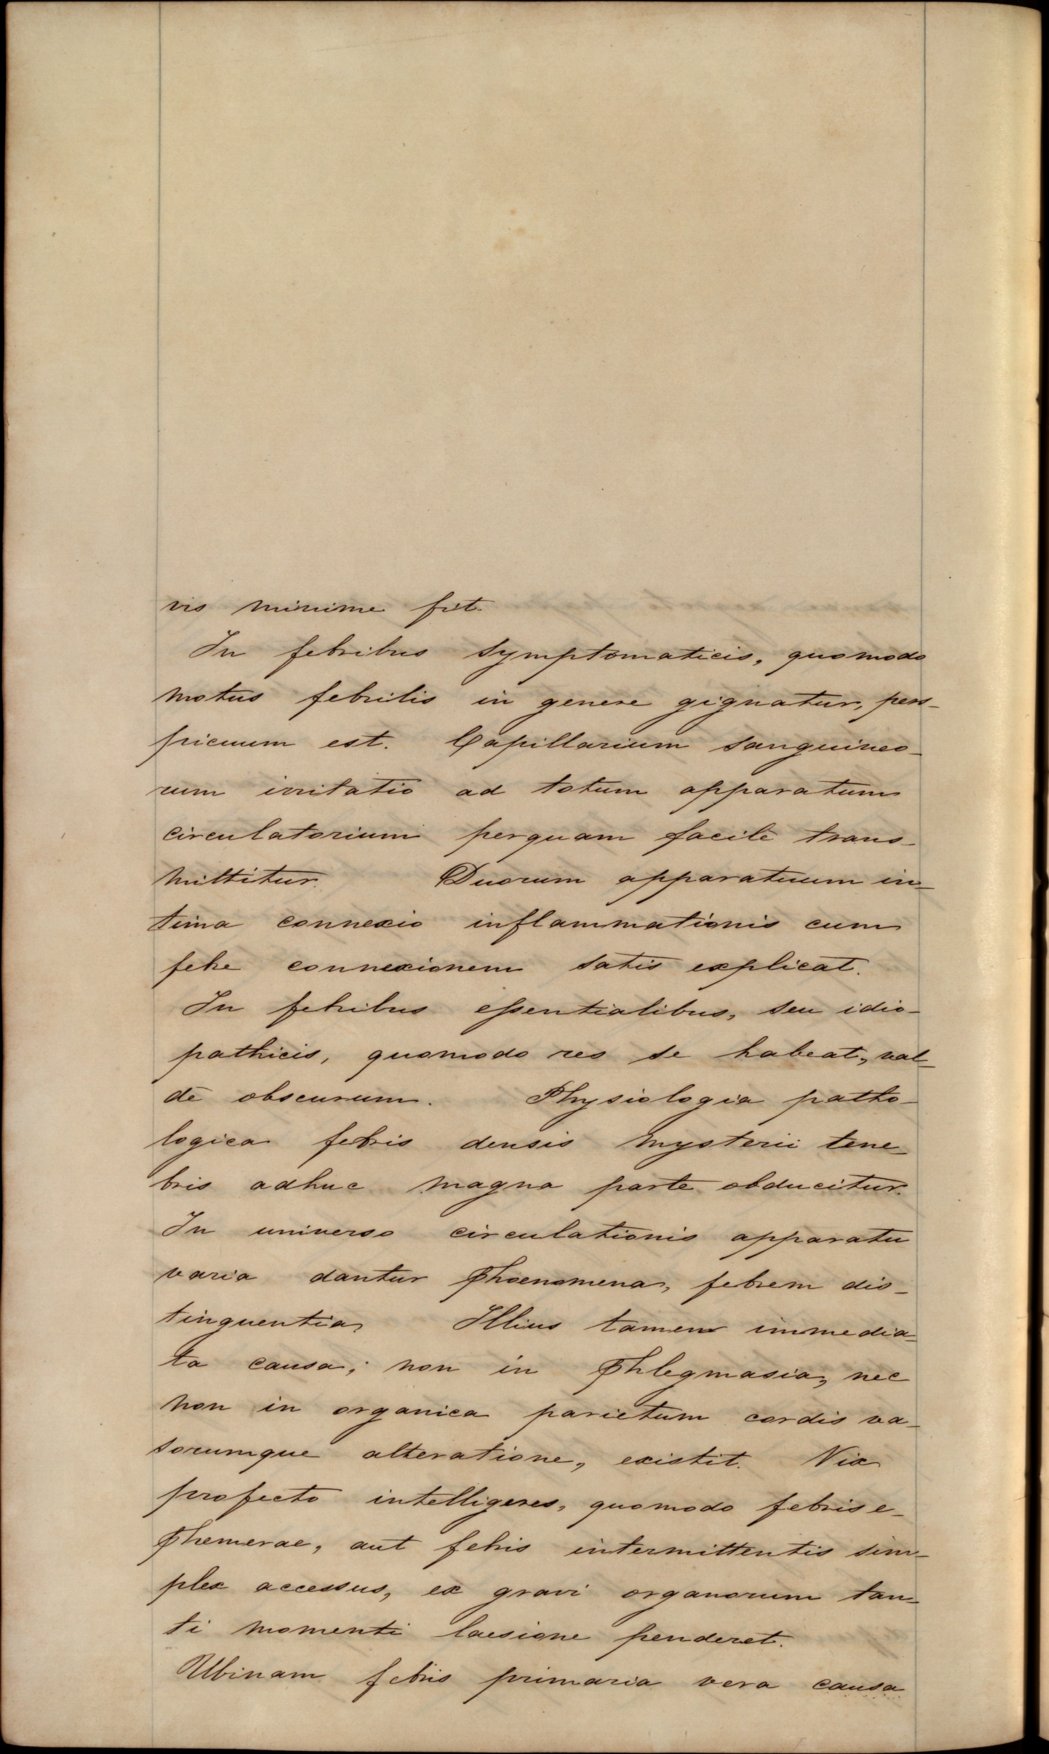 vis minime fit.
In febribus symptomaticis, quomodo
motus febrilis in genere gignatur, pers-
picuum est. Capillarium sanguineo-
rum irritatio ad totum apparatum
circulatorium perquam facilè trans-
mittitur. Duorum apparatuum in-
tima connexio inflammationis cum
febre connexionem satis explicat.
In febribus essentialibus, seu idio-
pathicis, quomodo res se habeat, val-
dè obscurum. Physiologia patho-
logica febris densis mysterii tene-
bris adhuc magna parte obducitur.
In universo circulationis apparatu
varia dantur phœnomena, febrem dis-
tinguentia. Illius tamen immedia-
ta causa, non in phlegmasia, nec
non in organica parietum cordis va-
sorumque alteratione, existit. Vix
profecto intelligeres, quomodo febris e-
phemerae, aut febris intermittentis sim-
plex accessus, ex gravi organorum tan-
ti momenti laesione penderet.
Ubinam febris primaria vera causa